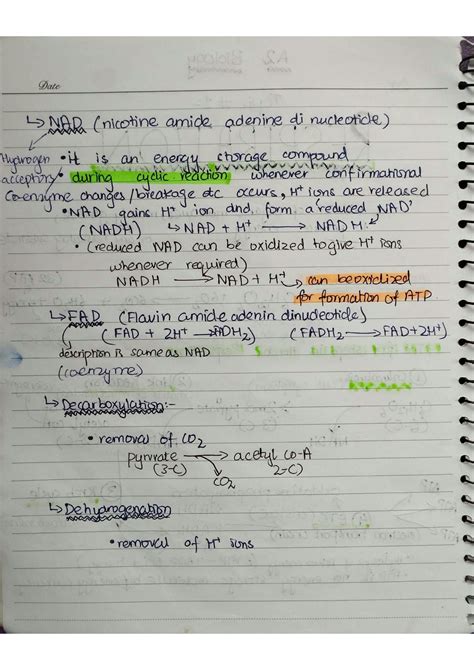 Date
↳ NAD (nicotine amide adenine di nucleotide)
Hydrogen acceptors
Co-enzyme
• it is an energy storage compound
• during cyclic reaction whenever confirmational
changes/breakage etc occurs, H⁺ ions are released
• NAD gains H⁺ ion and form a reduced NAD'
(NADH) ↳ NAD + H⁺ → NADH
• (reduced NAD can be oxidized to give H⁺ ions
whenever required)
NADH → NAD + H⁺ ↳ can be oxidized
for formation of ATP
↳ FAD (Flavin amide adenin dinucleotide)
(FAD + 2H⁺ → FADH₂) (FADH₂ → FAD+2H⁺)
description is same as NAD
(coenzyme)
↳ Decarboxylation:-
• removal of CO₂
pyruvate → acetyl CO-A
(3-C) 2-C)
CO₂
↳ Dehydrogenation
• removal of H⁺ ions